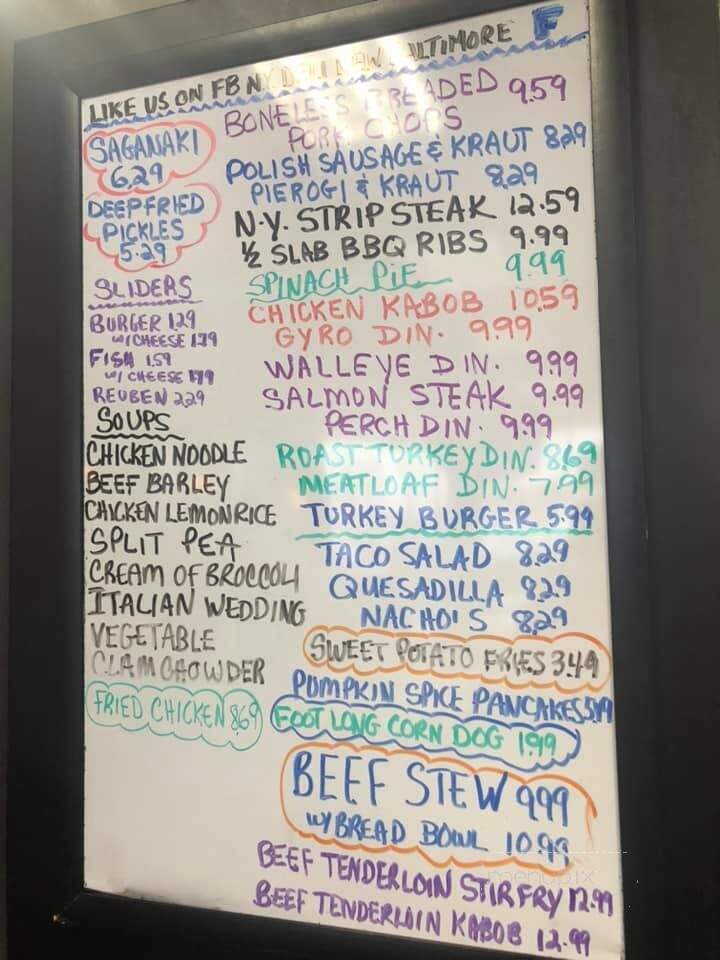 LIKE US ON FB N.Y. DELI NEW BALTIMORE F
SAGANAKI
6.29
DEEP FRIED
PICKLES
5.29
SLIDERS
BURGER 1.29
W/CHEESE 1.79
FISH 1.59
W/ CHEESE 1.79
REUBEN 2.29
SOUPS
CHICKEN NOODLE
BEEF BARLEY
CHICKEN LEMON RICE
SPLIT PEA
CREAM OF BROCCOLI
ITALIAN WEDDING
VEGETABLE
CLAM CHOWDER
FRIED CHICKEN 8.69
BONELESS BREADED 9.59
PORK CHOPS
POLISH SAUSAGE & KRAUT 8.29
PIEROGI & KRAUT 8.29
N.Y. STRIP STEAK 12.59
½ SLAB BBQ RIBS 9.99
SPINACH PIE 9.99
CHICKEN KABOB 10.59
GYRO DIN. 9.99
WALLEYE DIN. 9.99
SALMON STEAK 9.99
PERCH DIN. 9.99
ROAST TURKEY DIN. 8.69
MEATLOAF DIN. 7.99
TURKEY BURGER 5.99
TACO SALAD 8.29
QUESADILLA 8.29
NACHO'S 8.29
SWEET POTATO FRIES 3.49
PUMPKIN SPICE PANCAKES
FOOT LONG CORN DOG 1.99
BEEF STEW 9.99
W/ BREAD BOWL 10.99
BEEF TENDERLOIN STIR FRY 12.99
BEEF TENDERLOIN KABOB 12.99